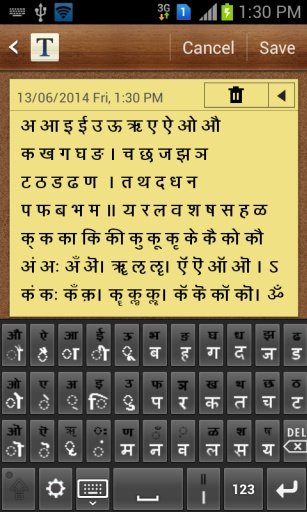 3G 1 1:30 PM
T Cancel Save
13/06/2014 Fri, 1:30 PM
अ आ इ ई उ ऊ ऋ ए ऐ ओ औ
क ख ग घ ङ । च छ ज झ ञ
ट ठ ड ढ ण । त थ द ध न
प फ ब भ म ॥ य र ल व श ष स ह ळ
क् क का कि की कु कू कृ के कै को कौ
अं अः अँ ॲ। ॠ ऌ ॡ। ऍ ऎ ऑ ऒ । ऽ
कं कः कँ क़। कॄ कॢ कॣ। कॅ कॆ कॉ कॊ। ॐ
औ ऐ आ ई ऊ भ ङ घ ध झ ढ
ौ ै ा ी ू ब ह ग द ज ड
ओ ए अ इ उ फ ञ ख थ छ ठ
ो े ् ि ु प र क त च ट
ऒ ऎ ऋ ः ँ ळ श ष
ॊ ॆ ृ ं म न व ल स य DEL
॥
। 123